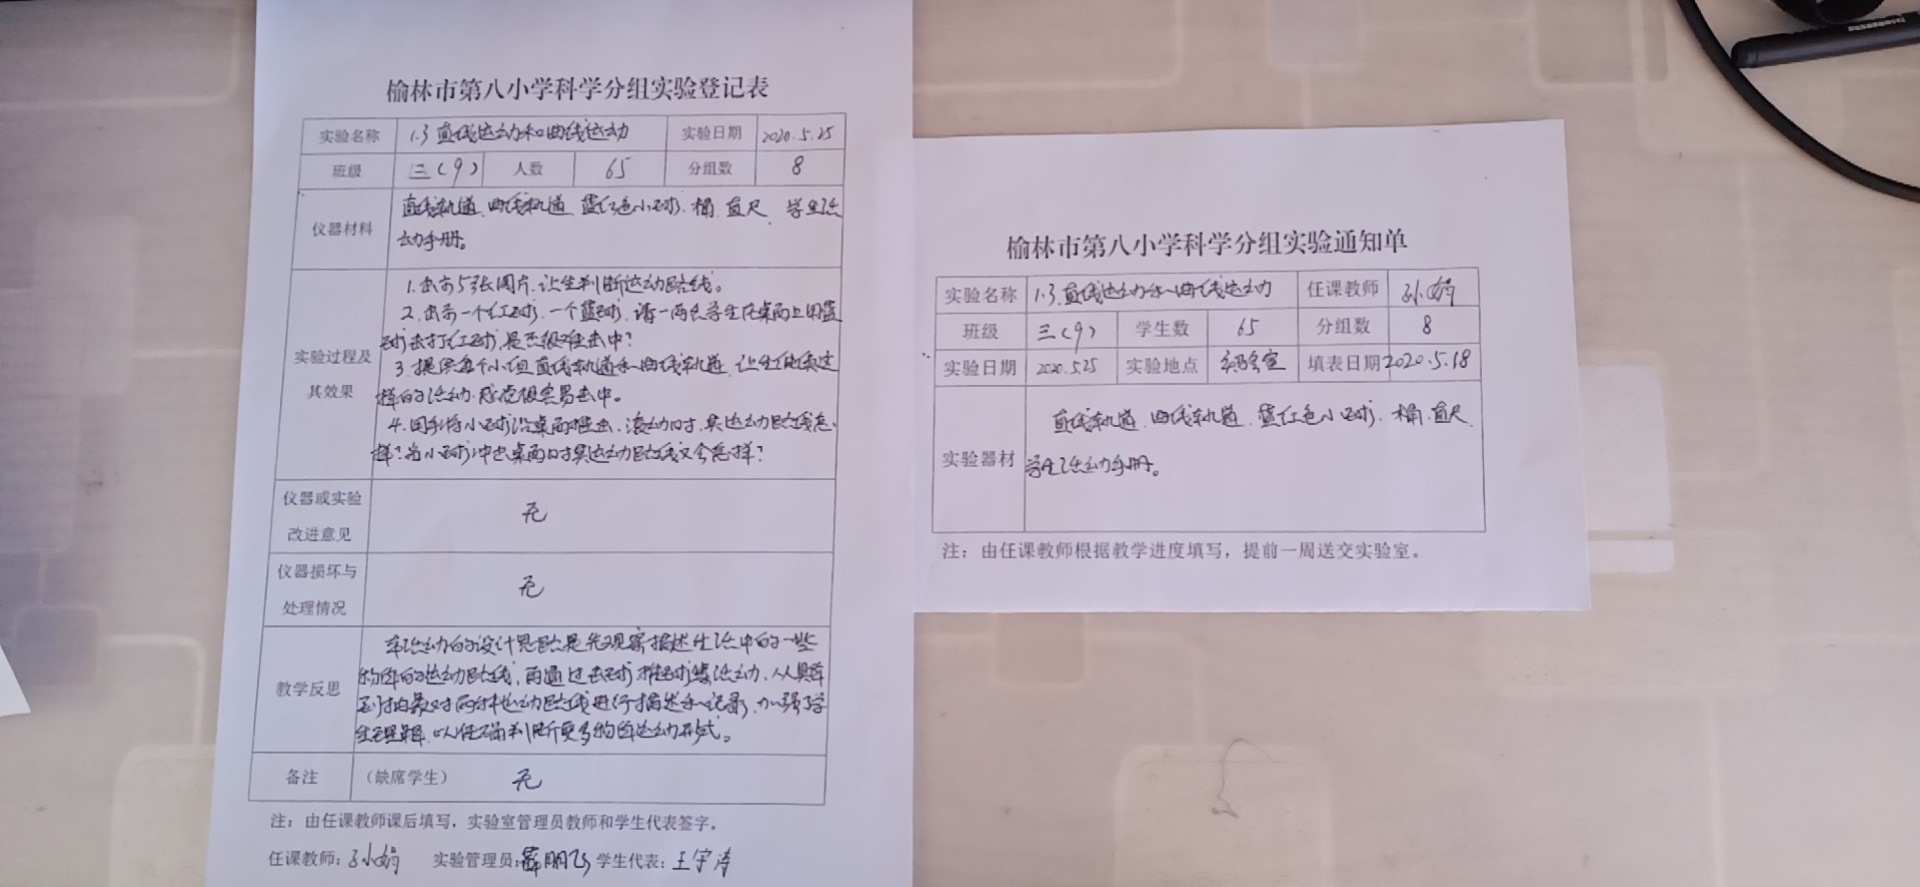 榆林市第八小学科学分组实验登记表
实验名称 1.3 直线运动和曲线运动 实验日期 2020.5.25
班级 三(9) 人数 65 分组数 8
仪器材料 直线轨道、曲线轨道、蓝红色小球、桶、直尺、学生活
动手册。
实验过程及
其效果
1.出示5张图片,让生判断运动路线。
2.出示一个红球,一个蓝球,请一两名学生在桌面上用蓝
球击打红球,是否很难击中?
3.提供每个小组直线轨道和曲线轨道,让生做类这
样的活动,感觉很容易击中。
4.用手将小球沿桌面推出,滚动时,其运动路线怎
样?当小球冲出桌面时其运动路线又会怎样?
仪器或实验
改进意见
无
仪器损坏与
处理情况
无
教学反思
本活动的设计思路是先观察描述生活中的一些
物体的运动路线,再通过击球 活动,从具体
到抽象对两种运动路线进行描述和记录,加强了学
生理解,以准确判断更多物体运动形式。
备注 (缺席学生) 无
注:由任课教师课后填写,实验室管理员教师和学生代表签字。
任课教师:孙娟 实验管理员:薛朋飞 学生代表:王宇涛
榆林市第八小学科学分组实验通知单
实验名称 1.3.直线运动和曲线运动 任课教师 孙娟
班级 三(9) 学生数 65 分组数 8
实验日期 2020.5.25 实验地点 实验室 填表日期 2020.5.18
实验器材
直线轨道、曲线轨道、蓝红色小球、桶、直尺、
学生活动手册。
注:由任课教师根据教学进度填写,提前一周送交实验室。